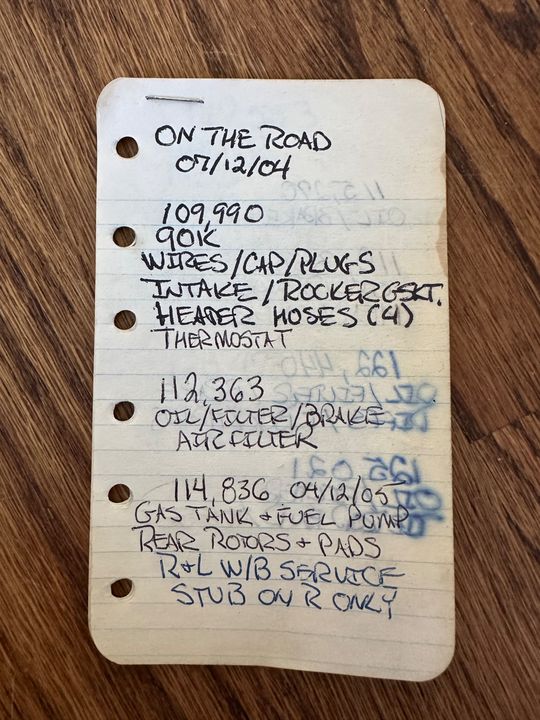 ON THE ROAD
07/12/04
109,990
90K
WIRES/CAP/PLUGS
INTAKE/ROCKER GSKT.
HEATER HOSES (4)
THERMOSTAT
112,363
OIL/FILTER/BRAKE
AIR FILTER
114,836 04/12/05
GAS TANK + FUEL PUMP
REAR ROTORS + PADS
R+L W/B SERVICE
STUB ON R ONLY